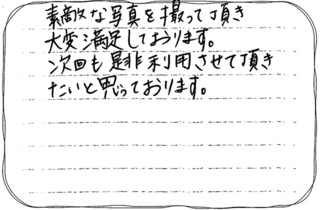 素敵な写真を撮って頂き
大変満足しております。
次回も是非利用させて頂き
たいと思っております。